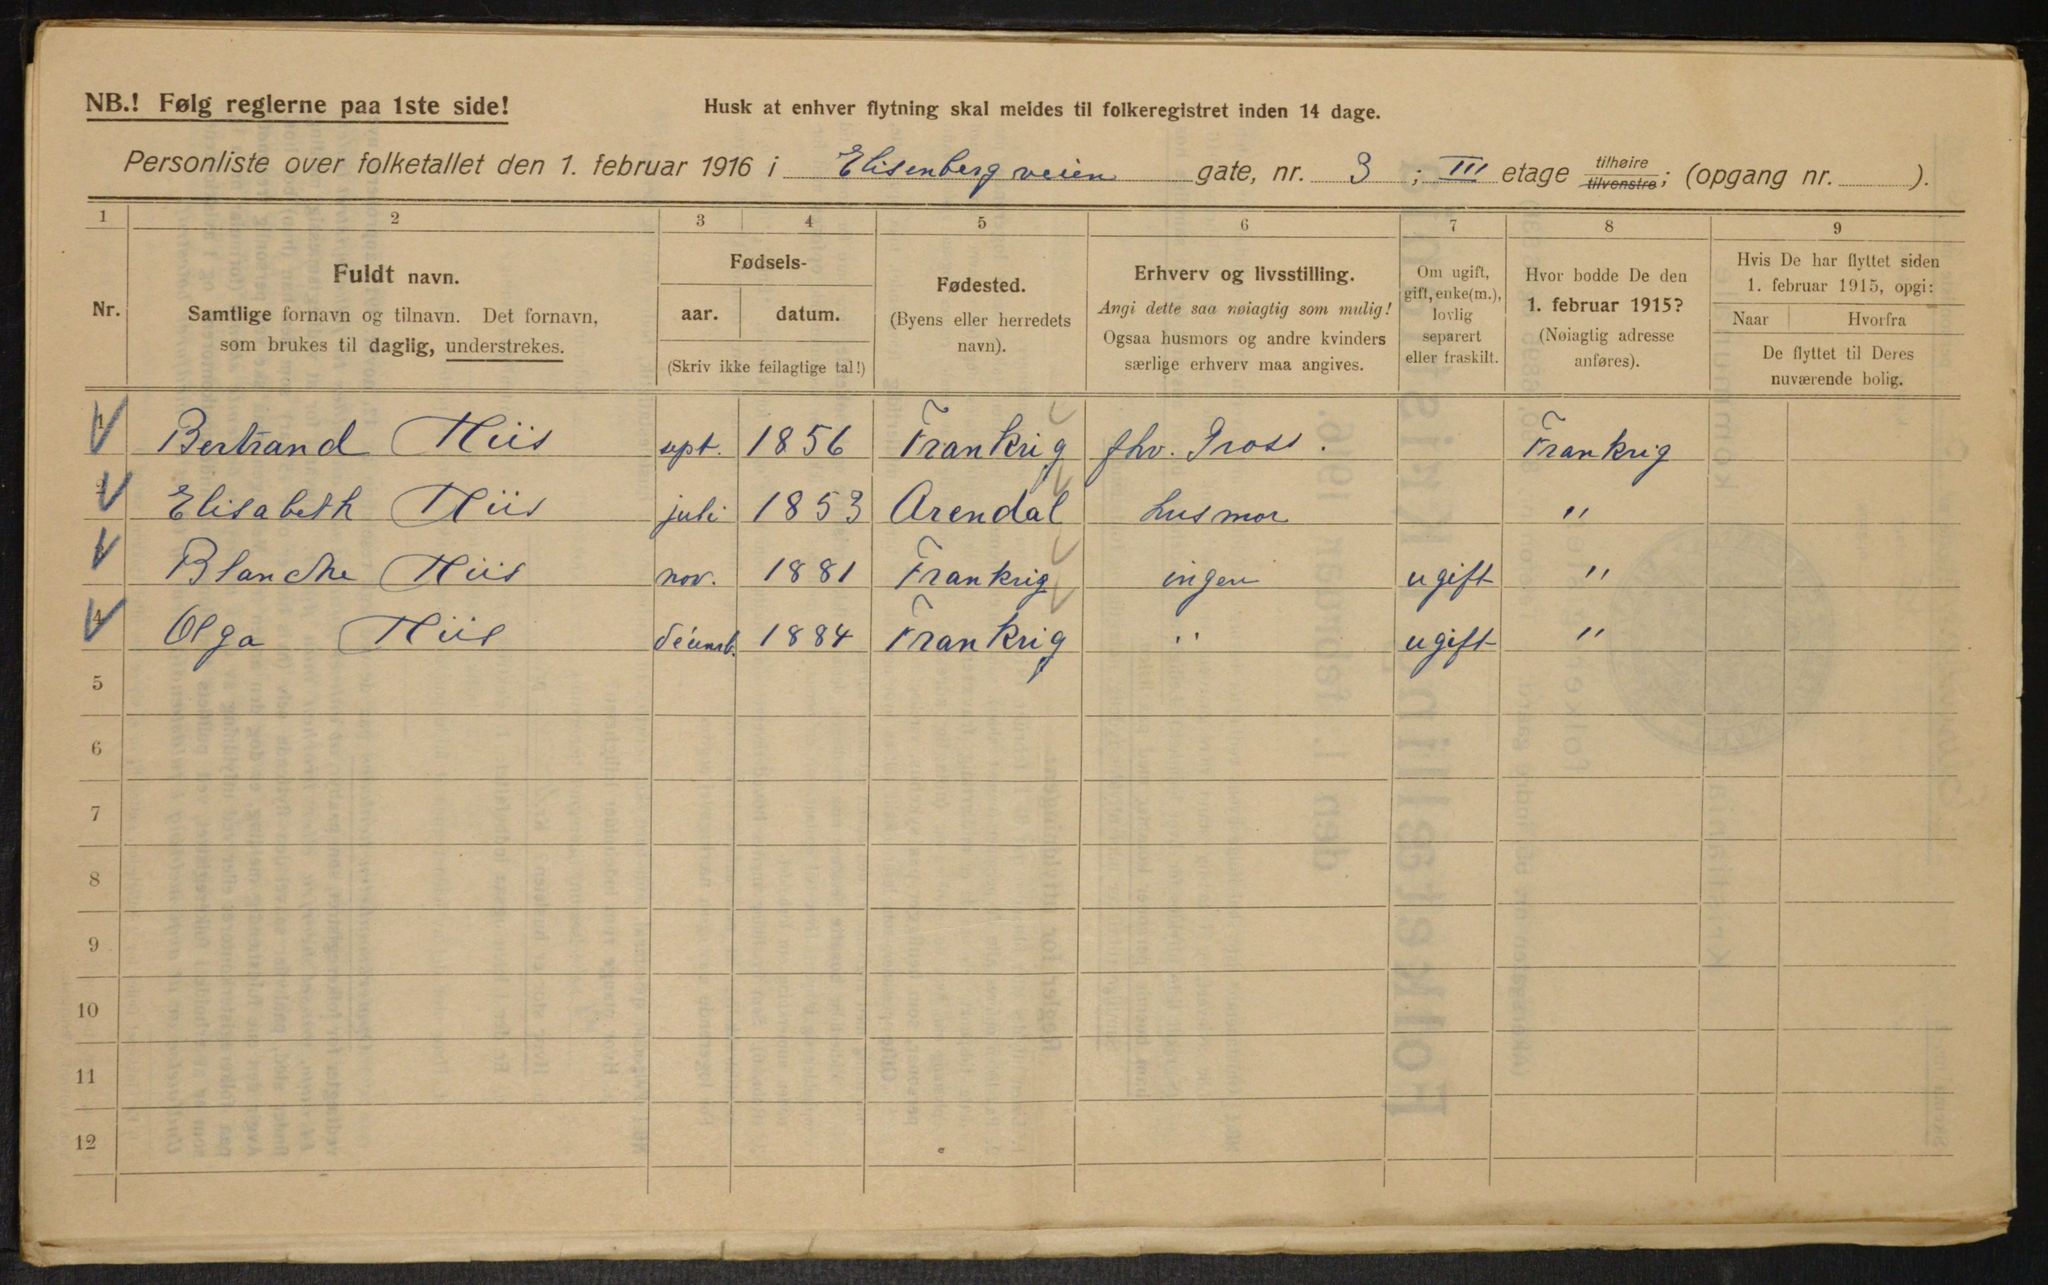 NB.! Følg reglerne paa 1ste side!
Husk at enhver flytning skal meldes til folkeregistret inden 14 dage.
Personliste over folketallet den 1. februar 1916 i Elisenbergveien gate, nr. 3 ; III etage tilhøire tilvenstre; (opgang nr. ).
1 2 3 4 5 6 7 8 9
Nr.
Fuldt navn.
Samtlige fornavn og tilnavn. Det fornavn,
som brukes til daglig, understrekes.
Fødsels-
aar. datum.
(Skriv ikke feilagtige tal!)
Fødested.
(Byens eller herredets
navn).
Erhverv og livsstilling.
Angi dette saa nøiagtig som mulig!
Ogsaa husmors og andre kvinders
særlige erhverv maa angives.
Om ugift,
gift, enke(m.),
lovlig
separert
eller fraskilt.
Hvor bodde De den
1. februar 1915?
(Nøiagtig adresse
anføres).
Hvis De har flyttet siden
1. februar 1915, opgi:
Naar Hvorfra
De flyttet til Deres
nuværende bolig.
1 Bertrand Hiis sept. 1856 Frankrig fhv. Gross. Frankrig
2 Elisabeth Hiis juli 1853 Arendal husmor "
3 Blanche Hiis nov. 1881 Frankrig ingen ugift "
4 Olga Hiis 1884 Frankrig " ugift "
5
6
7
8
9
10
11
12